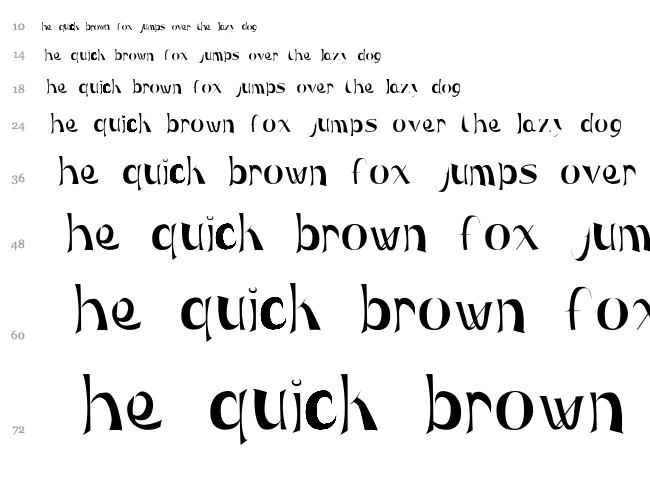 10 he quick brown fox jumps over the lazy dog
14 he quick brown fox jumps over the lazy dog
18 he quick brown fox jumps over the lazy dog
24 he quick brown fox jumps over the lazy dog
36 he quick brown fox jumps over
48 he quick brown fox jum
60 he quick brown fox
72 he quick brown